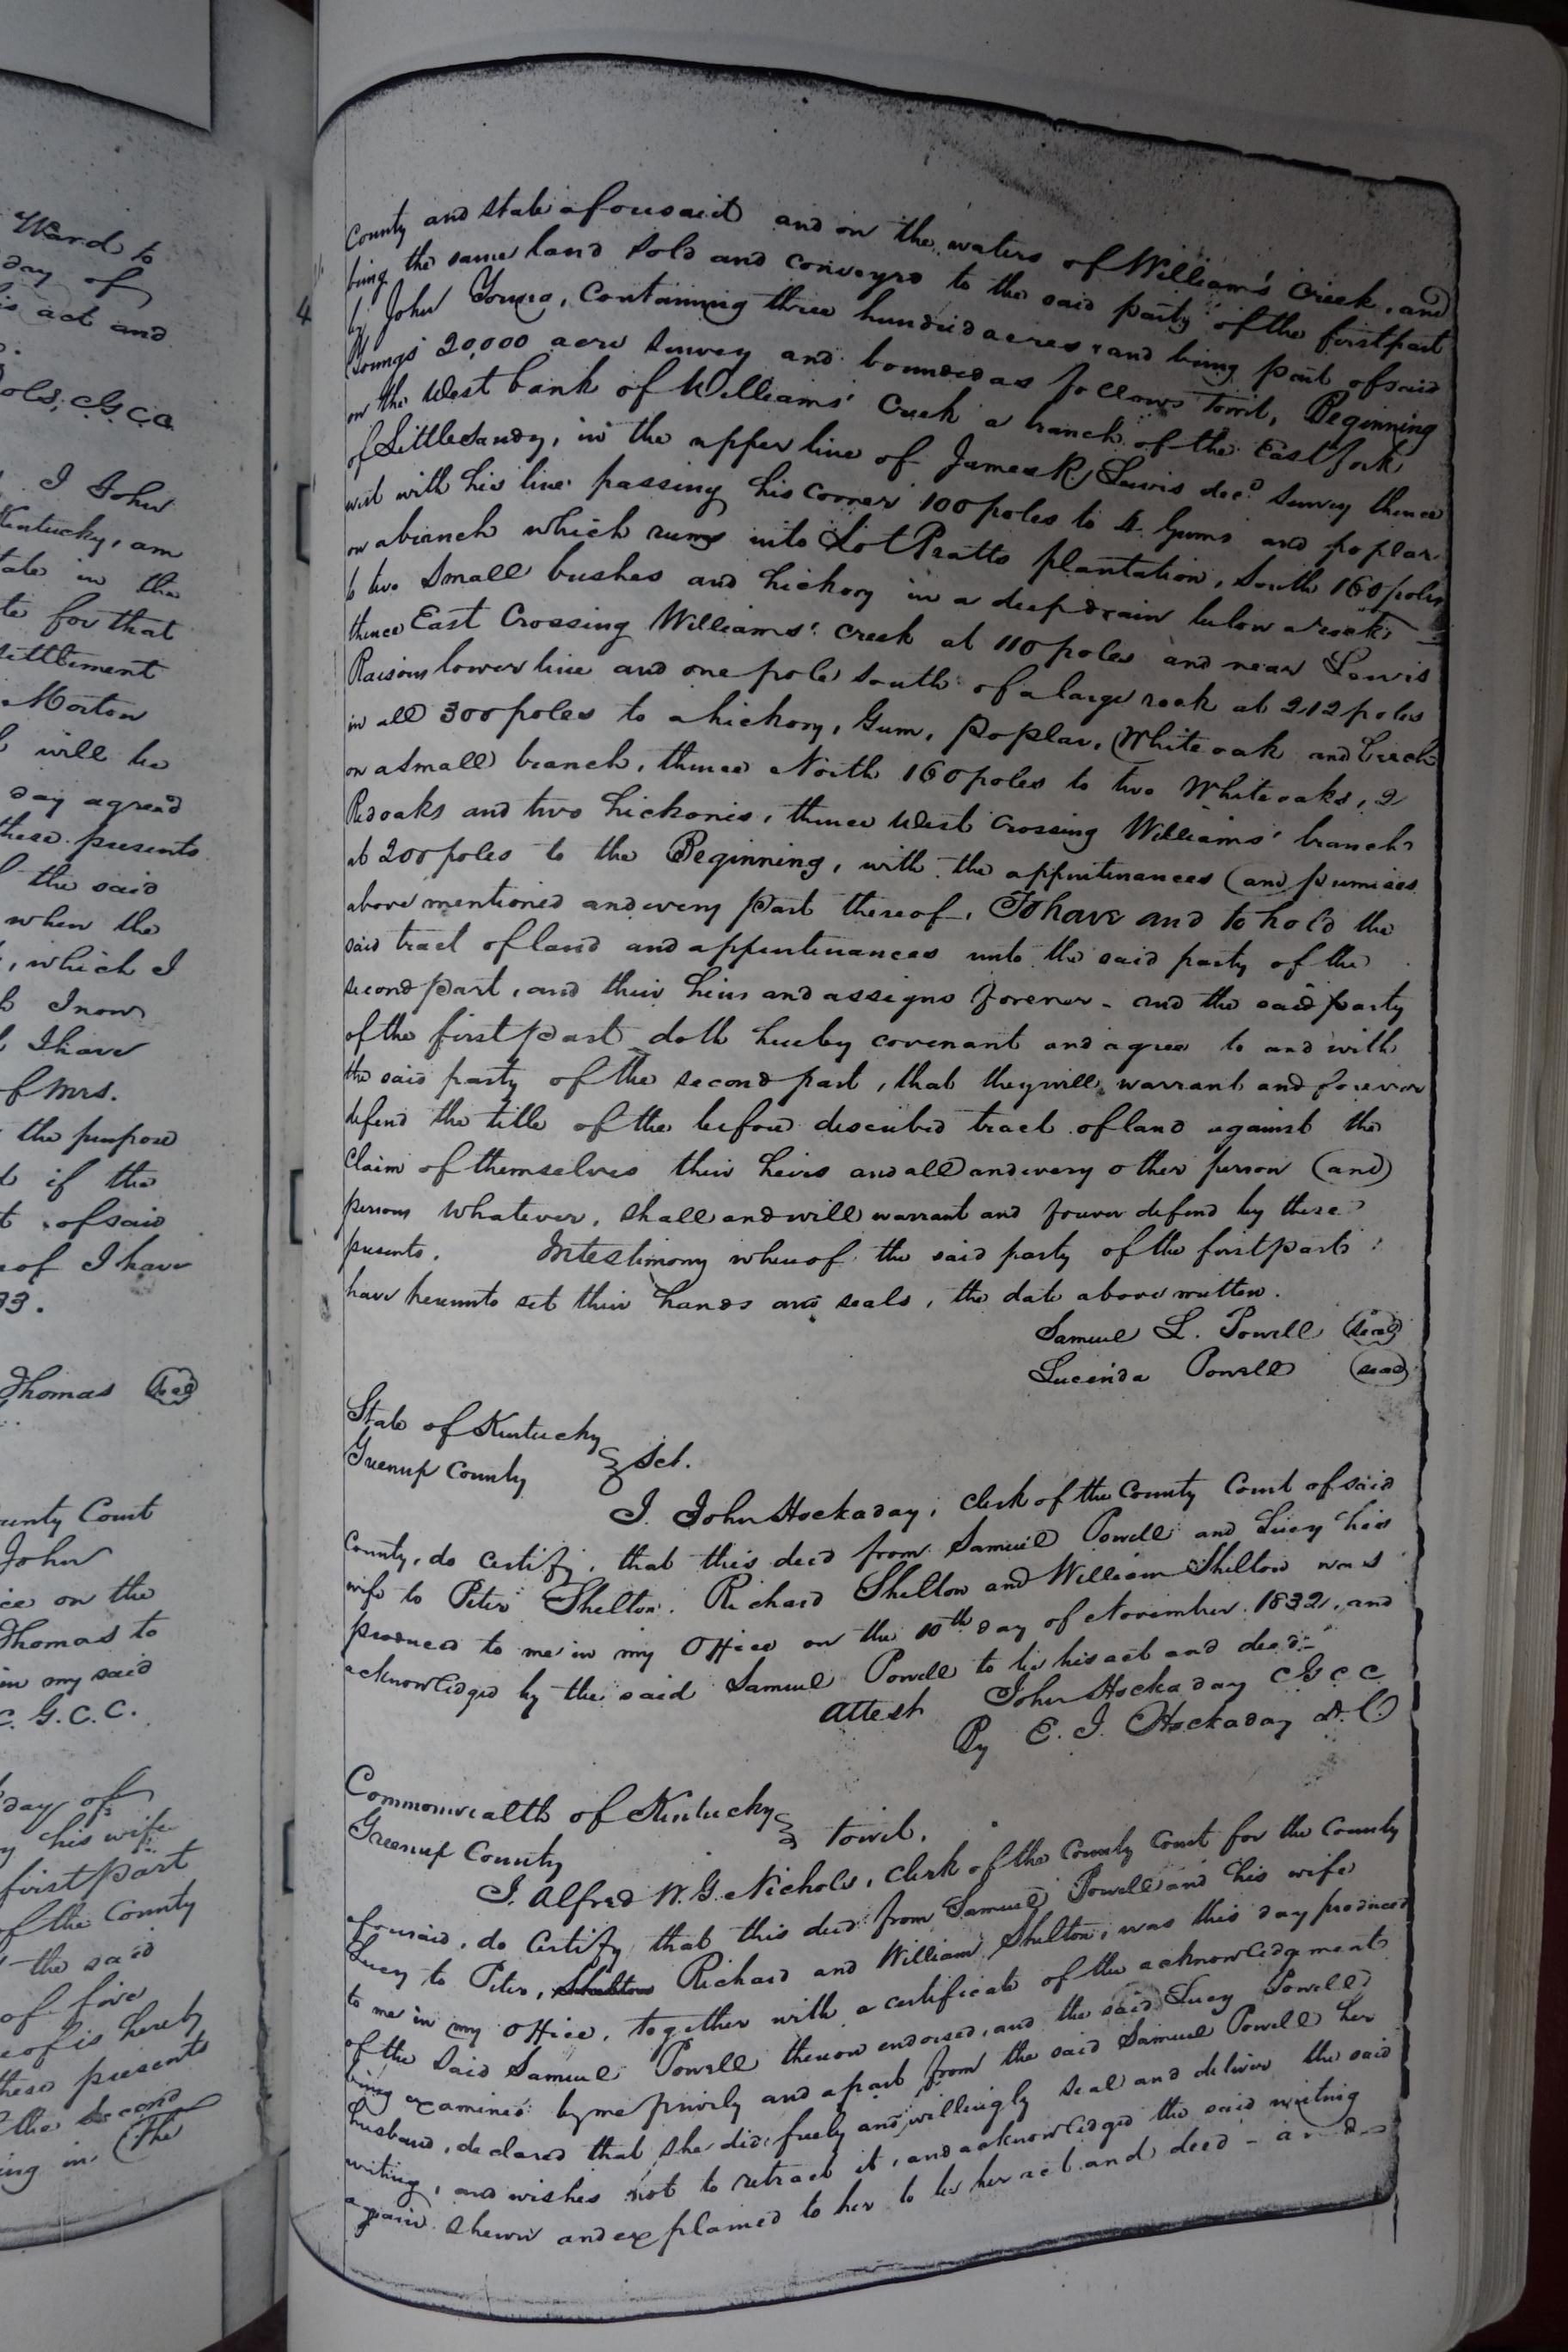 Ward to
day of
is act and
ols, C.G.C.C.
I John
Kentucky, am
ate in the
te for that
settlement
Morton
will be
day agreed
these presents
the said
when the
, which I
I now
I have
of Mrs.
the purpose
if the
of said
of I have
33.
Thomas (Seal)
unty Court
John
ice on the
Thomas to
in my said
C. G. C. C.
day of
his wife
first part
of the County
the said
of five
eof is hereby
these presents
the second
ing in. The
4
County and state aforesaid and on the waters of Williams' Creek, and
being the same land sold and conveyed to the said party of the first part
by John Young, Containing three hundred acres, and being part of said
Youngs' 20,000 acre Survey and bounded as follows Towit, Beginning
on the West bank of Williams' Creek a branch of the East fork
of Little Sandy, in the upper line of James R. Lewis decd. Survey thence
west with his line passing his corner 100 poles to 4 Gums and poplar
on a branch which runs into Lot Pratts plantation, South 160 poles
to two Small bushes and hickory in a deep drain below a rock
thence East Crossing Williams' Creek at 110 poles and near Lewis
Raisons lower line and one pole south of a large rock at 212 poles
in all 300 poles to a hickory, Gum, Poplar, White oak and birch
on a small branch, thence North 160 poles to two White oaks, 2
Redoaks and two hickories, thence West Crossing Williams' branch
at 200 poles to the Beginning, with the appurtenances and premises
above mentioned and every part thereof, To have and to hold the
said tract of land and appurtenances unto the said party of the
second part, and their heirs and assigns forever - and the said party
of the first part doth hereby covenant and agree to and with
the said party of the second part, that they will warrant and forever
defend the title of the before described tract of land against the
Claim of themselves their heirs and all and every other person (and)
persons whatever, shall and will warrant and forever defend by these
presents. In testimony whereof the said party of the first part
have hereunto set their hands and seals, the date above written.
Samuel L. Powell (Seal)
Lucinda Powell (Seal)
State of Kentucky
Greenup County } Sct.
I. John Hockaday, Clerk of the County Court of said
County, do certify, that this deed from Samuel Powell and Lucy his
wife to Peter Shelton. Richard Shelton and William Shelton was
produced to me in my Office on the 10th day of November 1832, and
acknowledged by the said Samuel Powell to be his act and deed.
Attest John Hockaday C G C C
By E. I. Hockaday D.C.
Commonwealth of Kentucky
Greenup County } towit.
I. Alfred W. G. Nichols, Clerk of the County Court for the County
aforesaid, do Certify that this deed from Samuel Powell and his wife
Lucy to Peter, Shelton Richard and William Shelton, was this day produced
to me in my Office, together with a certificate of the acknowledgement
of the said Samuel Powell thereon endorsed, and the said Lucy Powell
being examined by me privily and apart from the said Samuel Powell her
husband, declared that she did freely and willingly seal and deliver the said
writing, and wishes not to retract it, and acknowledged the said writing
again shewn and explained to her to be her act and deed - and